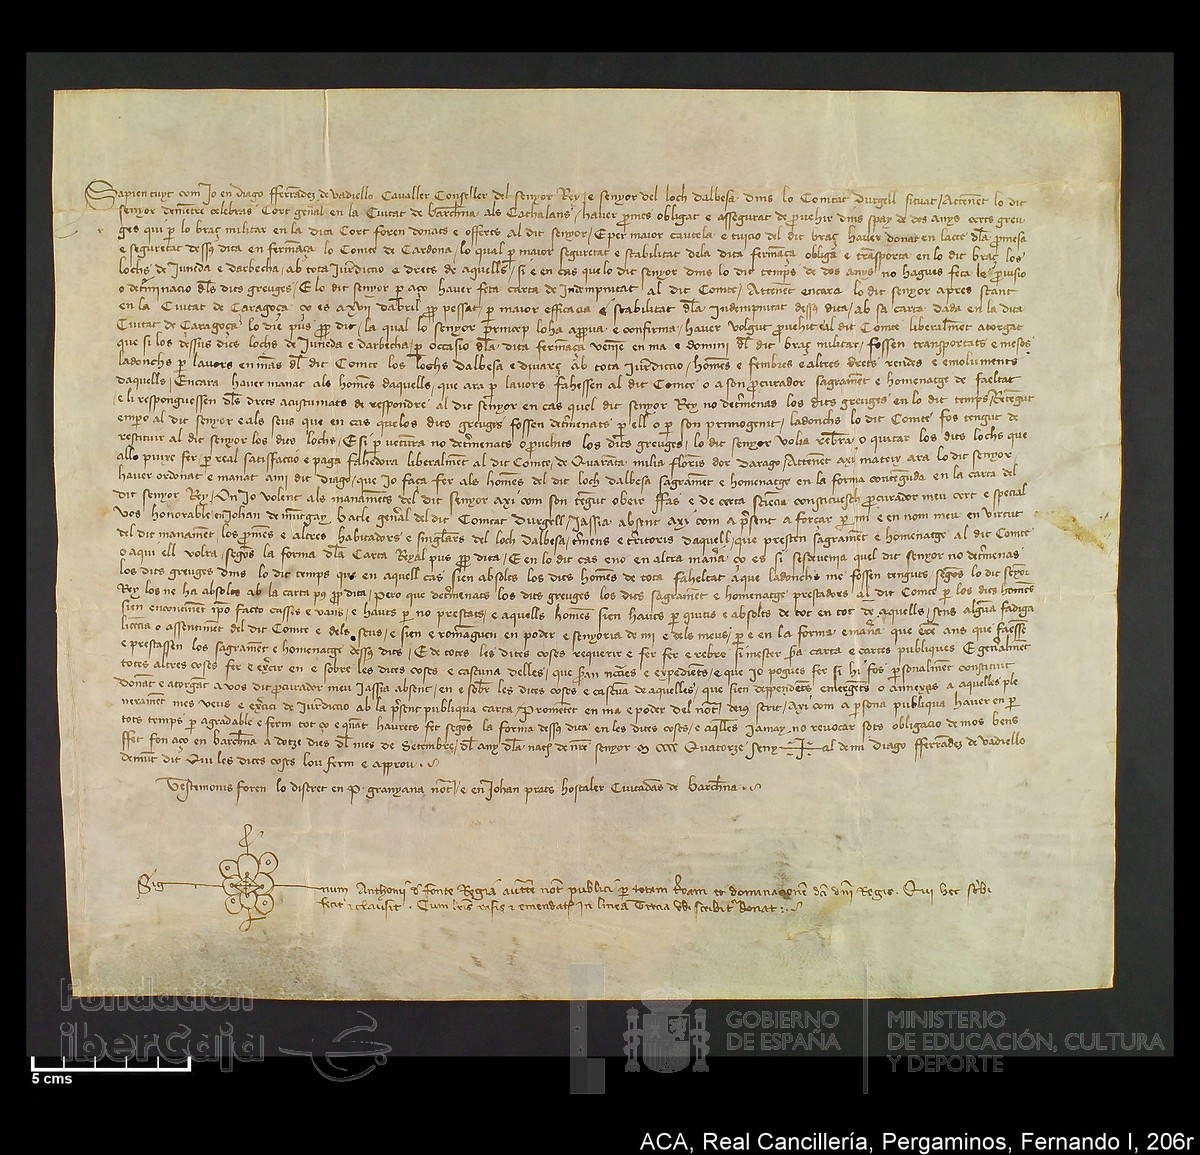 Sapien tuyt com Io en diago fferrãdez de vadiello Cavaller Conseller del senyor Rey e senyor del loch dalbesa dins lo Comtat durgell situat Attenent lo dit
senyor celebras Cort gen̄al en la Ciutat de barch̄na als Cathalans haver p̱mes obligat e assegurat de p̱vehir dins spay de dos anys certs greu
ges qui p̱ lo braç militar en la dita Cort foren donats e offerts al dit senyor E per maior cautela e tuicio del dit braç haver donat en lacte dla p̱mesa
e seguretat dessus dita en fermãça lo Comte de Cardona lo qual p̱ maior seguretat e stabilitat dela dita fermãça obliga e trãsporta en lo dit braç los
lochs de Juneda e darbecha ab tota Iurdiccio e drets de aquells si e en cas que lo dit senyor dins lo dit temps de dos anys no hagues feta le p̱visio
o det̄minacio dls dits greuges E lo dit senyor p̱ aço haver feta carta de Indempnitat al dit Comte Attenent encara lo dit senyor apres stant
en la Ciutat de Caragoça ço es a xvii dabril p̱p passat p̱ maior efficacia e stabilitat dla Indempnitat dessus dita ab sa carta dada en la dita
Ciutat de Caragoça lo dit p̱p dit la qual lo senyor p̱mcep lo ha app̱va e conferma haver volgut p̱vehit al dit Comte liberalment atorgat
que si los dessus dits lochs de Juneda e darbecha p̱ occasio dla dita fermãça en ma e domini dl dit braç militar fossen transportats e mesos
ladonchs p̱ lavors en mãs dl dit Comte los lochs dalbesa e ab tota Iurdiccio homẽs e fembres e altres drets rendes e emoluments
daquells Encara haver manat als homẽs daquells que ara p̱ lavors fahessen al dit Comte o a son p̱curador sagramẽt e homenatge de faeltat
e li responguessen dls drets acustumats de respondre al dit senyor en cas quel dit senyor Rey no det̄menas los dits greuges en lo dit temps Retengut
emp̱o al dit senyor e als seus que en cas quelos dits greuges fossen det̄menats p̱ ell o p̱ son primogenit ladonchs lo dit Comte fos tengut de
restituir al dit senyor los dits lochs E si p̱ ventura no det̄menats o p̱vehits los dits greuges lo dit senyor volia rebre o quitar los dits lochs que
allo puxe fer p̱ real satisfaccio e paga fahedora liberalmẽt al dit Comte de Quarãta milia florins dor darago Attenent axi mateix ara lo dit senyor
haver ordonat e manat a mi dit diago que Io faça fer als homẽs del dit loch dalbesa sagramẽt e homenatge en la forma contenguda en la carta del
dit senyor Rey On Io volent als manamẽts del dit senyor axi com son tengut obeir de certa sciencia constituesch p̱curador meu cert e special
vos honorable en Johan de batle gen̄al del dit Comtat durgell Iassia absent axi com a p̱sent a forçar p̱ mi e en nom meu en virtut
del dit manamẽt los p̱mes e altres habitadors e singlãrs del loch dalbesa t̄mens e t̄ritoris daquell que presten sagramẽt e homenatge al dit Comte
o a qui ell volra segõs la forma dla Carta Reyal p̱p dita E en lo dit cas e no en altra manã ço es si sesdevenia quel dit senyor no det̄menas
los dits greuges dins lo dit temps que en aquell cas sien absolts los dits homẽs de tota faheltat a que ladonchs me fossen tenguts segõs lo dit senyor
Rey los ne ha absolts ab la carta p̱p dita pero que det̄menats los dits greuges los dits sagramẽt e homenatge prestadors al dit Comte p̱ los dits homẽs
sien encontinent ip̄o facto cassos e vans e hauts p̱ no prestats e aquells homẽs sien hauts p̱ quitis e absolts de tot en tot de aquells sens alguna fadiga
licẽcia o assentimẽt del dit Comte e dels seus e sien e romãguen en poder e senyoria de mi e dels meus p̱ e en la forma e manã que eren ans que faessẽ
e prestassen los sagramẽt e homenatge dessus dits E de totes les dites coses requerir e fer fer e rebre si mester sera carta e cartes publiques E genalmẽt
totes altres coses fer e exercir en e sobre les dites coses e cascuna delles que seran ncẽs e expediẽts e que Io pogues fer si hi fos p̱sonalmẽt constituit
donãt e atorgãt a vos dit p̱curador meu Iassia absent en e sobre les dites coses e cascuna de aquelles que sien dependents emergẽts o annexas a aquelles ple
nerament mes veus e exercici de Iurdiccio ab la p̱sent publiqua carta p̱metent en ma e poder del not deius scrit axi com a p̱sona publiqua haver en p̱
tots temps p̱ agradable e ferm tot ço e quãt haurets fet segõs la forma dessus dita en les dites coses e aqlles iamay no revocar sots obligacio de mos bens
ffet fon aço en barch̄na a dotze dies dl mes de Setembre dl any dla nat̄ de nr̄e senyor M CCCC Quatorze Seny✝al de mi diago fferrãdez de vadiello
demũt dit Qui les dites coses lou ferm e approu
Testimonis foren lo discret en P. granyana not̄ e en Johan prats hostaler Ciutadãs de barch̄na
Sig num Anthonii d fonte Regia auct̄e not̄ publici p̱ totam t̄ram et dominacionẽ dc̄i dn̄i Regis Qui hec sc̄bi
fecit z clausit . Cum lr̄is rasis z emendat̄ in linea Tercia ubi scribitr̄ donat
Fundación
iberCaja
GOBIERNO
DE ESPAÑA
MINISTERIO
DE EDUCACIÓN, CULTURA
Y DEPORTE
5 cms
ACA, Real Cancillería, Pergaminos, Fernando I, 206r